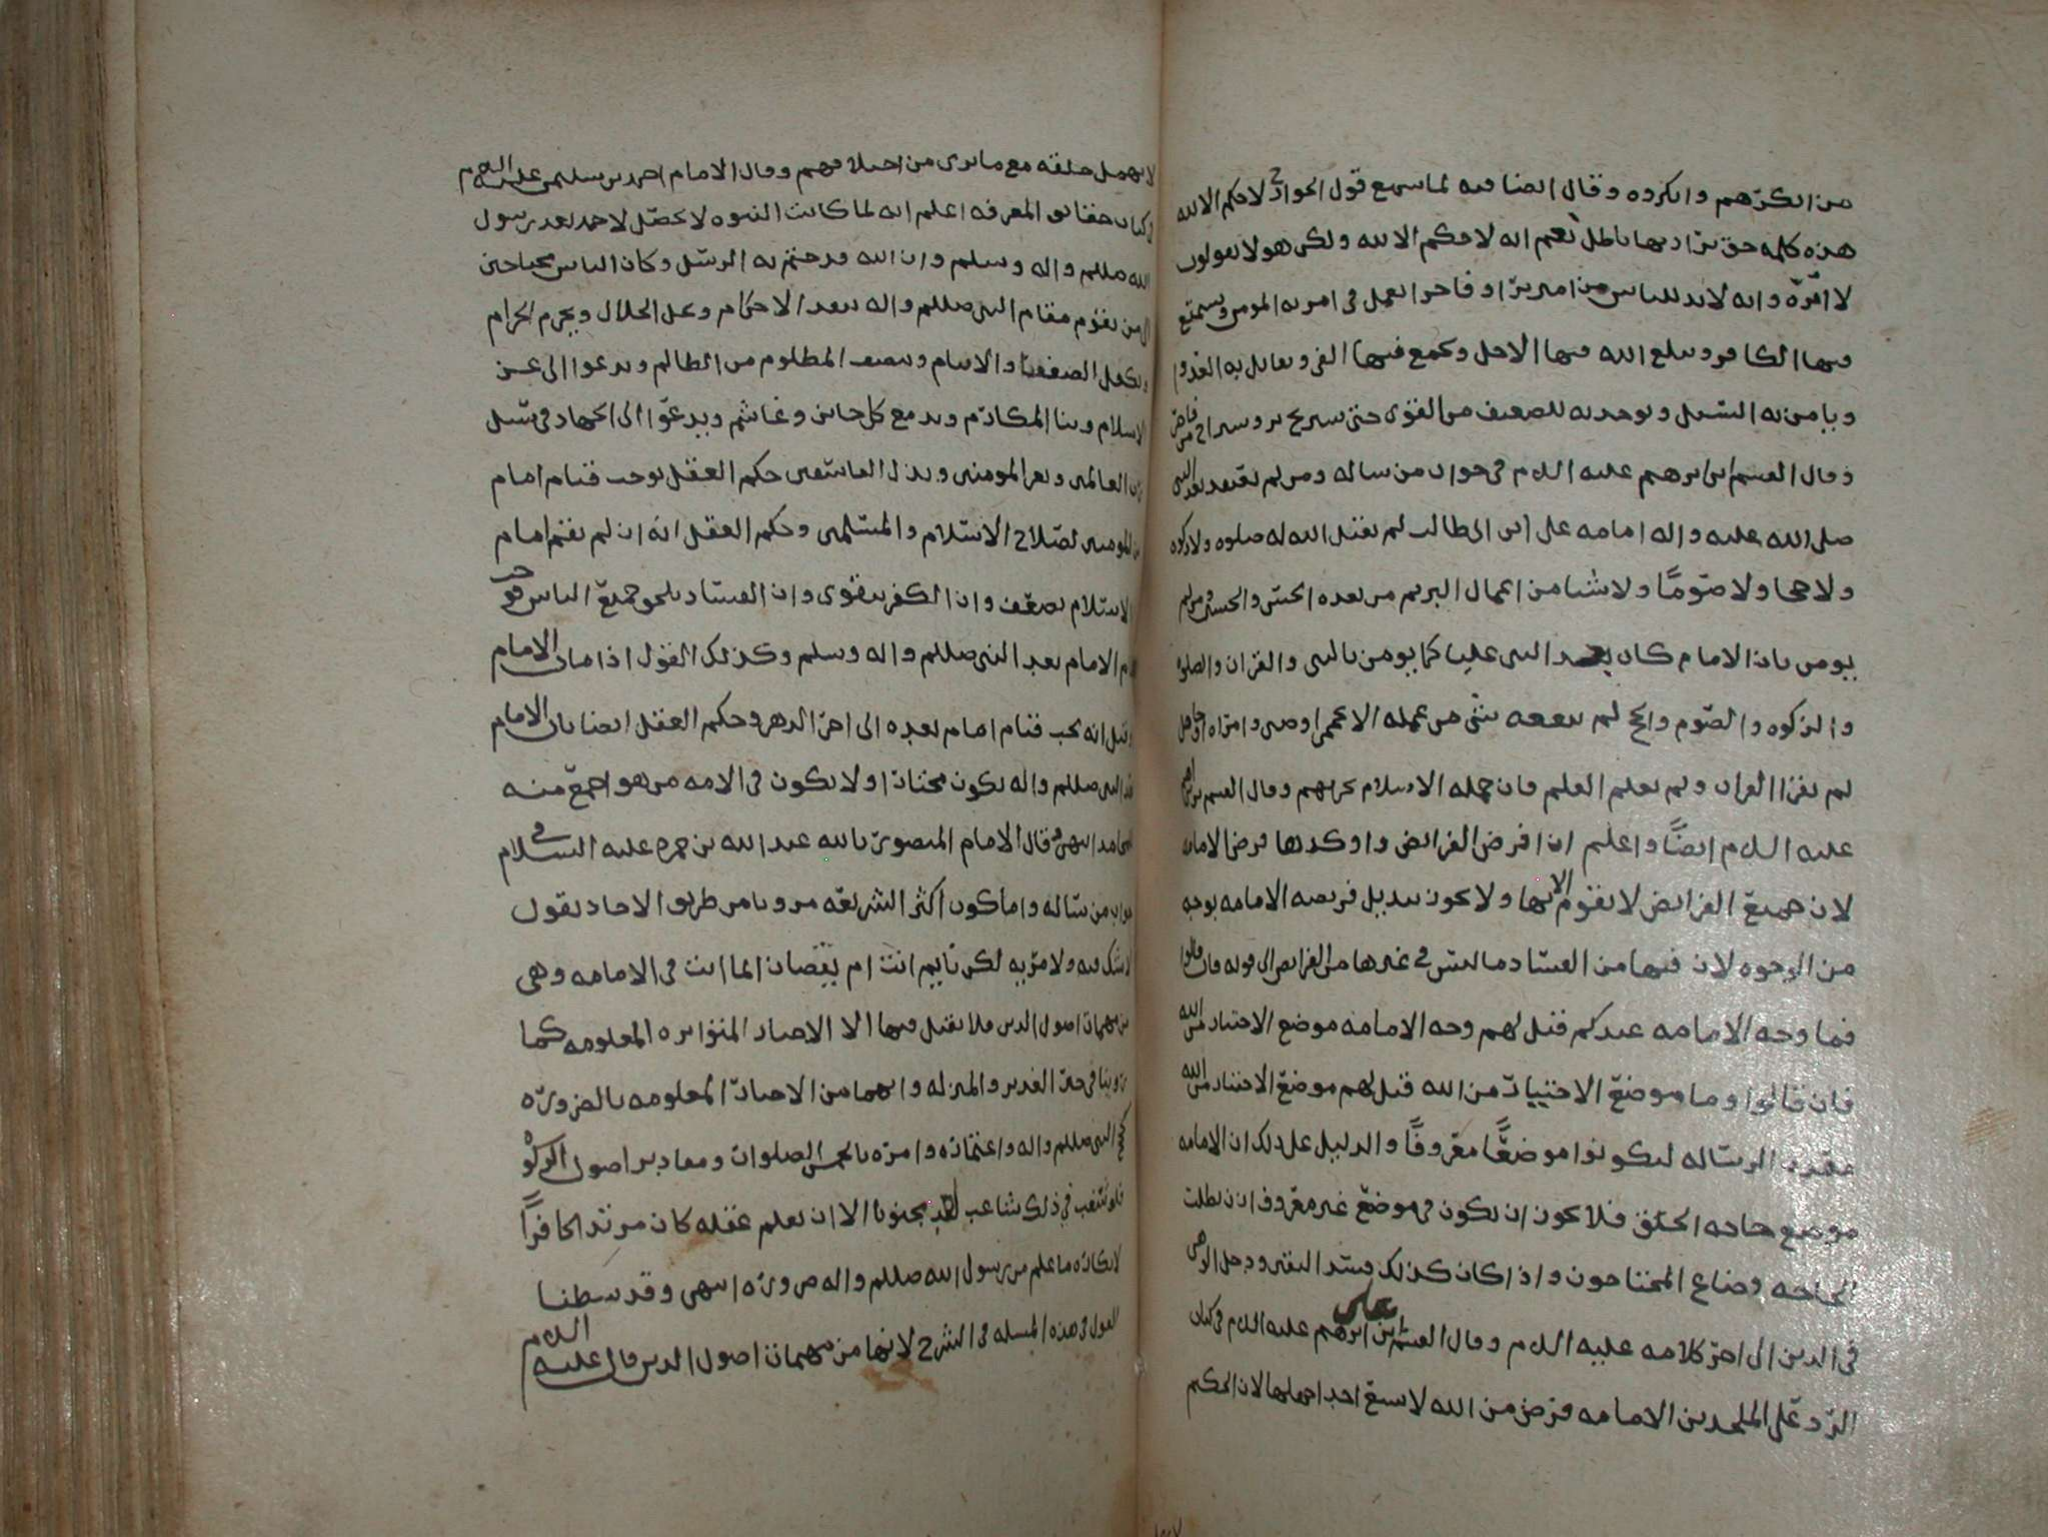 من انكرهم وانكروه وقال ايضا فيه لما سمع قول الخوارج لا حكم الا لله
هذه كلمة حق يراد بها باطل نعم انه لا حكم الا لله ولكن هولا يقولون
لا امرة وانه لا بد للناس من امير برا وفاجر يعمل في امرته المومن ويستمتع
فيها الكافر ويبلغ الله فيها الاجل ويجمع فيها الفي ويقاتل به العدو
ويامن به السبل ويوخذ به للضعيف من القوي حتى يستريح بر ويستراح من فاجر
وقال القسم ابن ابرهيم عليه السلام في جواب من ساله ومن لم يعتقد بعد النبي
صلى الله عليه واله امامة علي ابن ابي طالب لم يقبل الله له صلوة ولا زكوة
ولا حجا ولا صوما ولا شيا من اعمال البر ثم من بعده الحسن والحسين ومن لم
يومن بان الامام كان بعد النبي عليا كما يومن بالنبي والقران والصلوة
والزكوة والصوم والحج لم ينفعه شي من عمله الا عجمي او صبي وامراة او جاهل
لم يقرا القران ولم يعلم العلم فان جملة الاسلام تجزيهم وقال القسم بن ابرهيم
عليه السلام ايضا واعلم ان افرض الفرائض واوكدها فرض الامامة
لان جميع الفرائض لا يقوم الا بها ولا يجوز تبديل فريضة الامامة بوجه
من الوجوه لان فيها من الفساد ما ليس في غيرها من الفرائض الى قوله فان قالوا
فما وجه الامامة عندكم قيل لهم وجه الامامة موضع الاختيار من الله
فان قالوا وما موضع الاختيار من الله قيل لهم موضع الاختيار من الله
معدن الرسالة ليكونوا موضعا معروفا والدليل على ذلك ان الامامة
موضع حاجة الخلق فلا يجوز ان يكون في موضع غير معروف اذن بطلت
الحاجة وضاع المحتاجون واذا كان كذلك فسد التقى ودخل الوهي
في الدين الى اخر كلامه عليه السلام وقال القسم ابن ابرهيم عليه السلام في كتاب
الرد على الملحدين الامامة فرض من الله لا يسع احد اجهلها لان الحكيم
لا يهمل خلقه مع ما يرى من اختلافهم وقال الامام احمد بن سليمن عليه السلام
في كتاب حقائق المعرفة اعلم انه لما كانت النبوة لا تحصل لاحد بعد رسول
الله صللم واله وسلم وان الله قد ختم به الرسل وكان الناس محتاجين
الى من يقوم مقام النبي صللم واله ينفذ الاحكام ويحل الحلال ويحرم الحرام
ويكفل الضعفا والايتام وينصف المظلوم من الظالم ويدعوا الى عز
الاسلام وبنا المكارم ويدمع كل جاير وغاشم ويدعوا الى الجهاد في سبيل
رب العالمين ويعز المومنين ويذل الفاسقين حكم العقل بوجب قيام امام
من المومنين لصلاح الاسلام والمسلمين وحكم العقل انه ان لم يقم امام
الاسلام يضعف وان الكفر يقوى وان الفساد يلحق جميع الناس فوجب
قيام الامام بعد النبي صللم واله وسلم وكذلك القول اذا مات الامام
وقيل انه يجب قيام امام بعده الى اخر الدهر وحكم العقل ايضا بان الامام
بعد النبي صللم واله يكون مختارا ولا يكون في الامة من هو اجمع منه
للمحامد انتهى وقال الامام المنصور بالله عبد الله بن حمزة عليه السلام في
جواب من ساله واما كون اكثر الشريعة مرويا من طريق الاحاد يقول
لا شك فيه ولا مرية لكن نايم انت ام يقضان انما انت في الامامة وهي
من مهمات اصول الدين فلا يقبل فيها الا الاخبار المتواترة المعلومة كما
روينا في خبر الغدير والمنزلة وانهما من الاخبار المعلومة بالضرورة
كحج النبي صللم واله واعتماره وامره بالخمس الصلوات ومقادير اصول الزكوة
فلو شغب في ذلك شاغب مجنونا الا ان يعلم عقله كان مرتدا كافرا
لانكاره ما علم من رسول الله صللم واله ضرورة انتهى وقد بسطنا
القول في هذه المسلة في الشرح لانها من مهمات اصول الدين قال عليه السلام